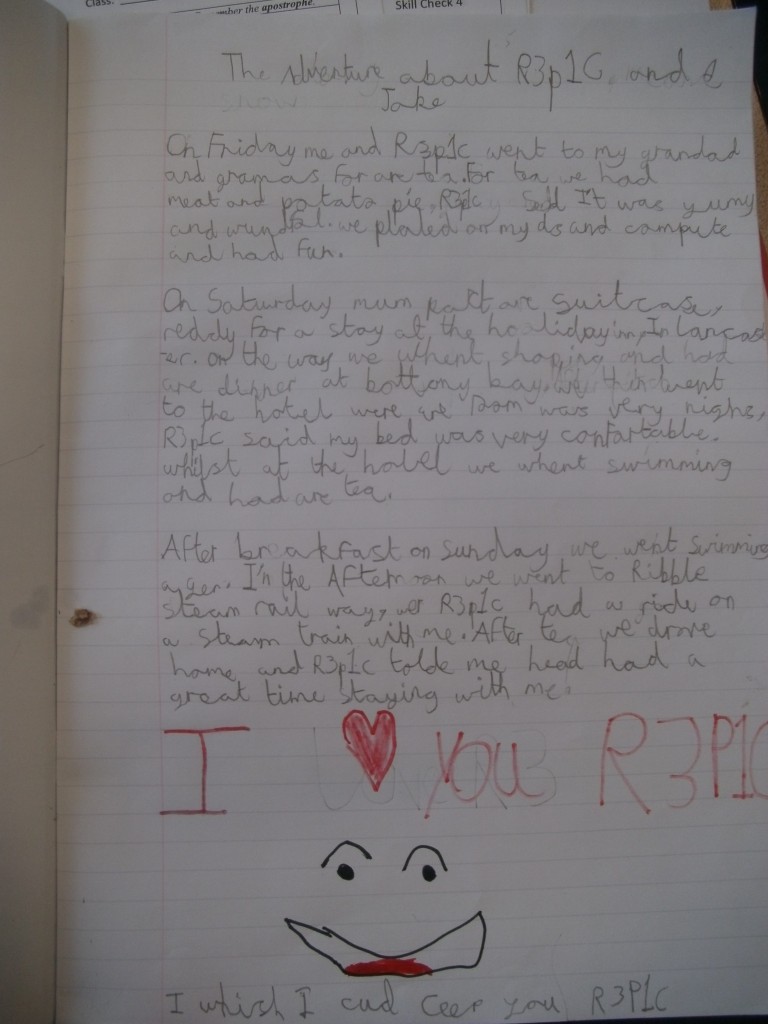 Class:
mber the apostrophe.
Skill Check 4
The Adventure about R3p1C and
Jake
On Friday me and R3p1c went to my grandad
and gramas for are tea. For tea we had
meat and potato pie, R3p1c Sed It was yumy
and wundfal. we plaied on my ds and compute
and had fun.
On Saturday mum patt are suitcase,
reddy for a stay at the holidayinn, In lancas
er. on the way we whent shoping and had
are dinner at bottony bay, we then went
to the hotel were are Room was very nighs,
R3p1c said my bed was very confartable.
whilst at the hotel we whent swimming
and had are tea.
After breakfast on Sunday we went Swimming
agen. I'n the Afternoon we went to Ribble
steam rail way, wer R3p1c had a ride on
a steam train with me. After tea we drove
home and R3p1c tolde me head had a
great time staying with me.
I you R3P1C
I whish I cud Ceep you R3P1C